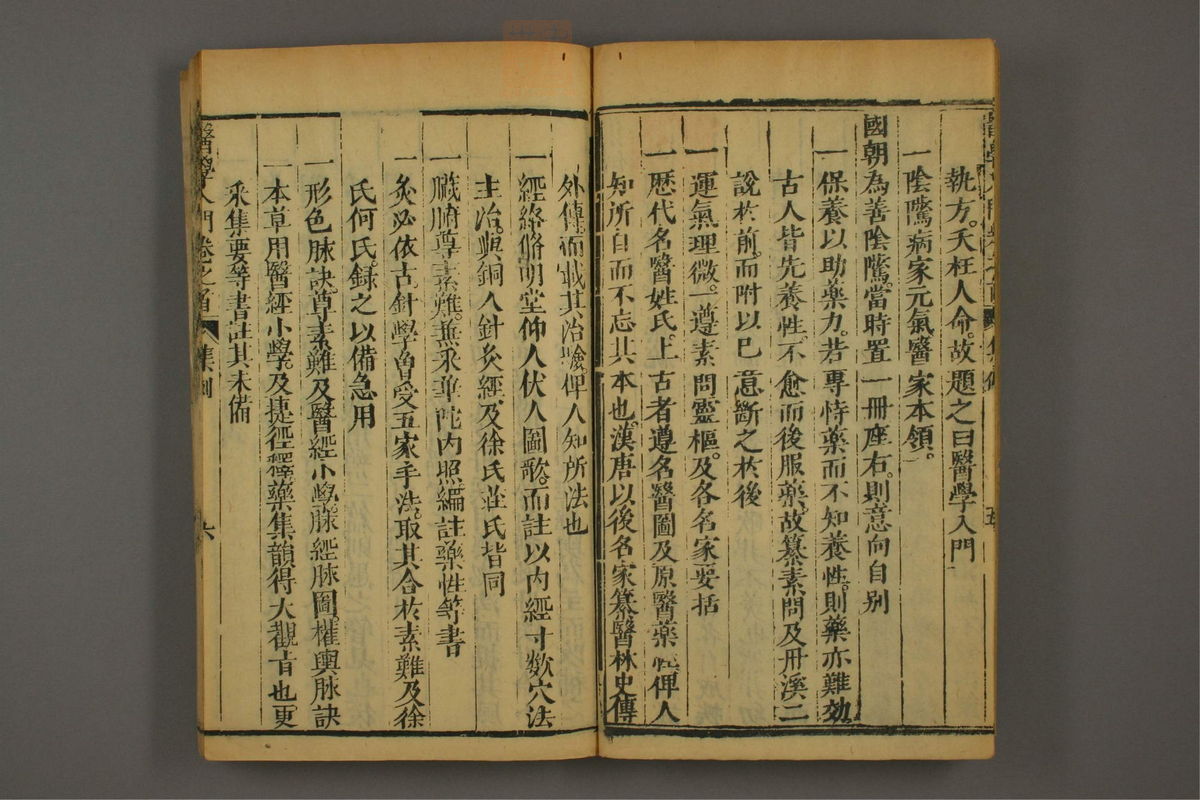 執方。夭枉人命。故題之曰醫學入門
一陰騭病家元氣醫家本領。
國朝為善陰騭。當時置一冊座右。則意向自別
一保養以助藥力。若專恃藥而不知養性。則藥亦難効
古人皆先養性。不愈而後服藥。故纂素問及丹溪二
說於前。而附以已意斷之於後
一運氣理微。一遵素問靈樞。及各名家要括
一歷代名醫姓氏。上古者遵名醫圖及原醫藥性俾人
知所自而不忘其本也。漢唐以後名家纂醫林史傳
外傳。而載其治驗俾人知所法也
一經絡脩明堂仲人伏人圖歌。而註以內經寸数穴法
主治。與銅人針灸經及徐氏莊氏皆同
一臟腑尊素難。兼采華陀內照編註藥性等書
一灸必依古。針學曾受五家手法。取其合於素難及徐
氏何氏。録之以備急用
一形色脉訣尊素難及醫經小學。脉經脉圖。權輿脉訣
一本草用醫經小學。及捷徑釋藥集韻得大觀旨也。更
采集要等書註其未備
醫學入門 卷之首 集例 六